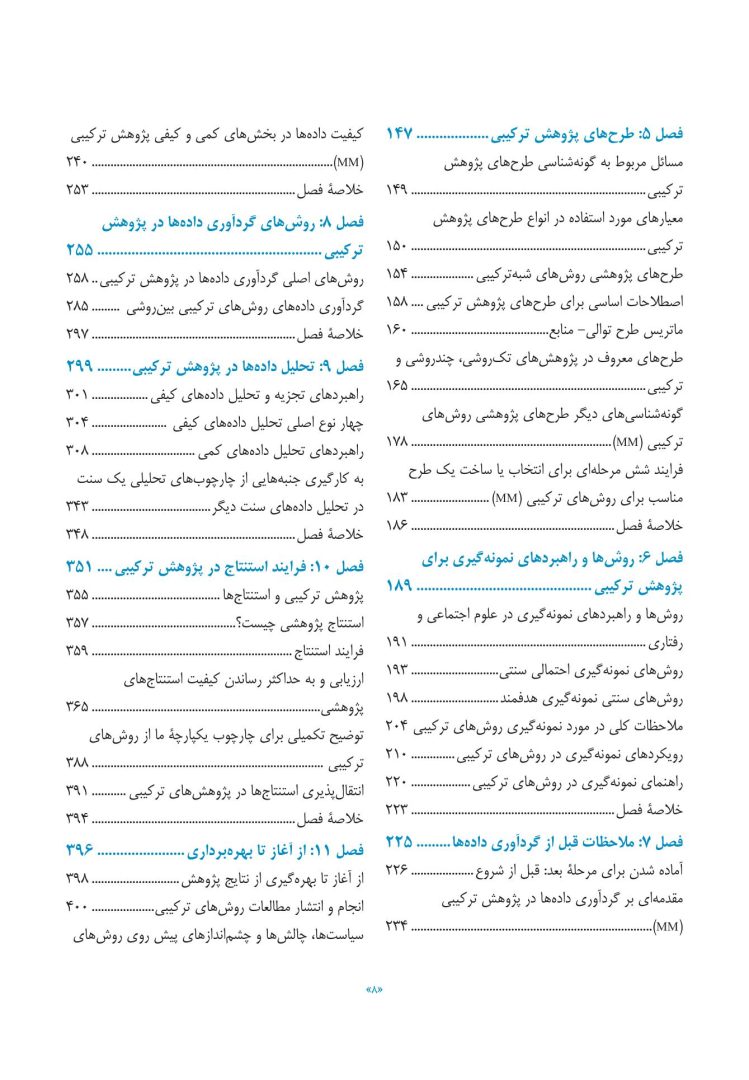 فصل ۵: طرح‌های پژوهش ترکیبی ................... ۱۴۷
مسائل مربوط به گونه‌شناسی طرح‌های پژوهش
ترکیبی ................................................................ ۱۴۹
معیارهای مورد استفاده در انواع طرح‌های پژوهش
ترکیبی ................................................................ ۱۵۰
طرح‌های پژوهشی روش‌های شبه‌ترکیبی .................... ۱۵۴
اصطلاحات اساسی برای طرح‌های پژوهش ترکیبی .... ۱۵۸
ماتریس طرح توالی- منابع ...................................... ۱۶۰
طرح‌های معروف در پژوهش‌های تک‌روشی، چندروشی و
ترکیبی ................................................................ ۱۶۵
گونه‌شناسی‌های دیگر طرح‌های پژوهشی روش‌های
ترکیبی (MM) ....................................................... ۱۷۸
فرایند شش مرحله‌ای برای انتخاب یا ساخت یک طرح
مناسب برای روش‌های ترکیبی (MM) ......................... ۱۸۳
خلاصۀ فصل ........................................................ ۱۸۶
فصل ۶: روش‌ها و راهبردهای نمونه‌گیری برای
پژوهش ترکیبی .............................................. ۱۸۹
روش‌ها و راهبردهای نمونه‌گیری در علوم اجتماعی و
رفتاری ................................................................ ۱۹۱
روش‌های نمونه‌گیری احتمالی سنتی ........................ ۱۹۳
روش‌های سنتی نمونه‌گیری هدفمند ........................ ۱۹۸
ملاحظات کلی در مورد نمونه‌گیری روش‌های ترکیبی ۲۰۴
رویکردهای نمونه‌گیری در روش‌های ترکیبی .............. ۲۱۰
راهنمای نمونه‌گیری در روش‌های ترکیبی .................... ۲۲۰
خلاصۀ فصل ........................................................ ۲۲۳
فصل ۷: ملاحظات قبل از گردآوری داده‌ها ......... ۲۲۵
آماده شدن برای مرحلۀ بعد: قبل از شروع .................... ۲۲۶
مقدمه‌ای بر گردآوری داده‌ها در پژوهش ترکیبی
(MM) .................................................................. ۲۳۴
کیفیت داده‌ها در بخش‌های کمی و کیفی پژوهش ترکیبی
(MM) .................................................................. ۲۴۰
خلاصۀ فصل ........................................................ ۲۵۳
فصل ۸: روش‌های گردآوری داده‌ها در پژوهش
ترکیبی ........................................................... ۲۵۵
روش‌های اصلی گردآوری داده‌ها در پژوهش ترکیبی .. ۲۵۸
گردآوری داده‌های روش‌های ترکیبی بین‌روشی ......... ۲۸۵
خلاصۀ فصل ........................................................ ۲۹۷
فصل ۹: تحلیل داده‌ها در پژوهش ترکیبی ......... ۲۹۹
راهبردهای تجزیه و تحلیل داده‌های کیفی ................. ۳۰۱
چهار نوع اصلی تحلیل داده‌های کیفی ....................... ۳۰۴
راهبردهای تحلیل داده‌های کمی ............................... ۳۰۸
به کارگیری جنبه‌هایی از چارچوب‌های تحلیلی یک سنت
در تحلیل داده‌های سنت دیگر ................................. ۳۴۳
خلاصۀ فصل ........................................................ ۳۴۸
فصل ۱۰: فرایند استنتاج در پژوهش ترکیبی .... ۳۵۱
پژوهش ترکیبی و استنتاج‌ها ................................... ۳۵۵
استنتاج پژوهشی چیست؟ ........................................ ۳۵۷
فرایند استنتاج ....................................................... ۳۵۹
ارزیابی و به حداکثر رساندن کیفیت استنتاج‌های
پژوهشی ............................................................... ۳۶۵
توضیح تکمیلی برای چارچوب یکپارچۀ ما از روش‌های
ترکیبی ................................................................ ۳۸۸
انتقال‌پذیری استنتاج‌ها در پژوهش‌های ترکیبی ........... ۳۹۱
خلاصۀ فصل ........................................................ ۳۹۴
فصل ۱۱: از آغاز تا بهره‌برداری ....................... ۳۹۶
از آغاز تا بهره‌گیری از نتایج پژوهش ........................ ۳۹۸
انجام و انتشار مطالعات روش‌های ترکیبی .................... ۴۰۰
سیاست‌ها، چالش‌ها و چشم‌اندازهای پیش روی روش‌های
«۸»